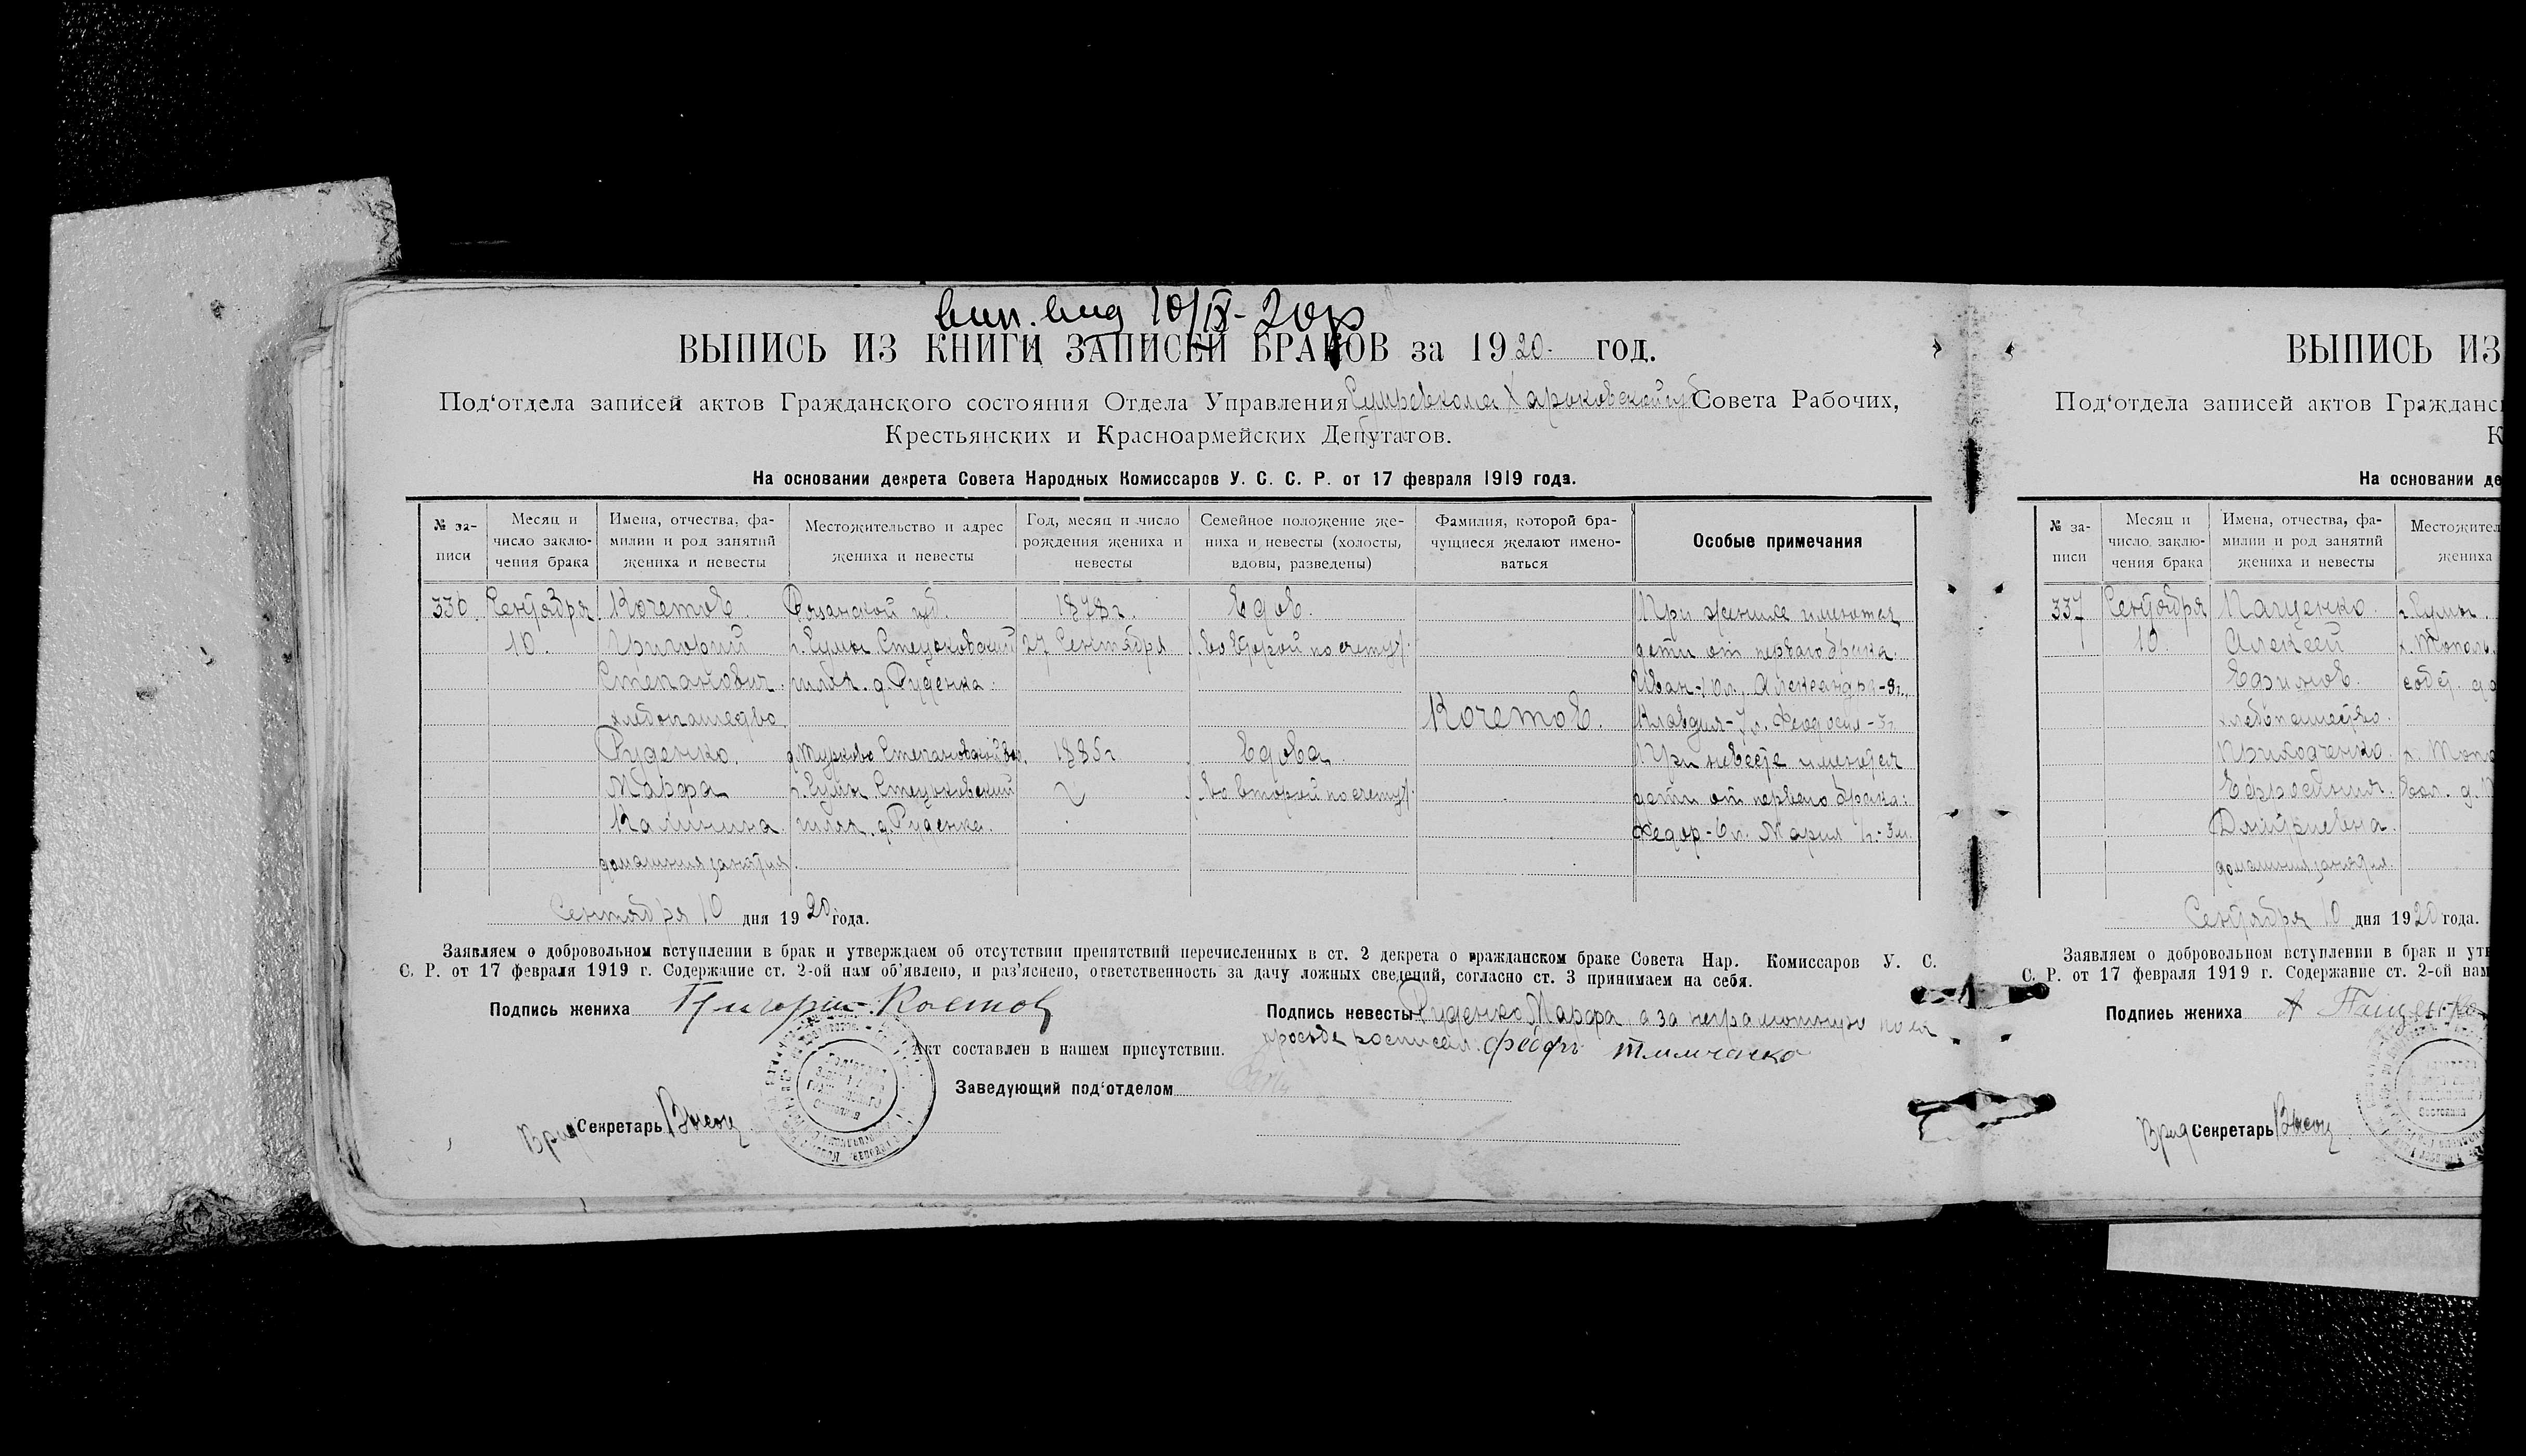 вып. вид 10/IX-20г
ВЫПИСЬ ИЗ КНИГИ ЗАПИСЕЙ БРАКОВ за 1920. год.
Под‘отдела записей актов Гражданского состояния Отдела Управления Харьковской губ Совета Рабочих,
Крестьянских и Красноармейских Депутатов.
На основании декрета Совета Народных Комиссаров У. С. С. Р. от 17 февраля 1919 года.
№ за-писи
Месяц и число заклю-чения брака
Имена, отчества, фа-милии и род занятий жениха и невесты
Местожительство и адрес жениха и невесты
Год, месяц и число рождения жениха и невесты
Семейное положение же-ниха и невесты (холосты, вдовы, разведены)
Фамилия, которой бра-чущиеся желают имено-ваться
Особые примечания
336. Сентября Кочетов. Рязанской губ. 1878 г. Вдов. При женихе имеются
10. Григорий г. Сумы Стецьковский 27 Сентября (во второй по счету). дети от первого брака.
Степанович. шлях. д. Руденка. Иван-10 л., Александра-9 л.,
хлебопашество. Кочетов. Клавдия-7 л. Феодосия-3 г.
Руденко. Степановской вол. 1885 г Вдова. При невесте имеются
Марфа г. Сумы Стецьковский (во второй по счету). дети от первого брака:
Калинина. шлях. д. Руденка. Федор-6 л. Мария
домашния занятия.
Сентября 10 дня 1920 года.
Заявляем о добровольном вступлении в брак и утверждаем об отсутствии препятствий перечисленных в ст. 2 декрета о гражданском браке Совета Нар. Комиссаров У. С.
С. Р. от 17 февраля 1919 г. Содержание ст. 2-ой нам об‘явлено, и раз‘яснено, ответственность за дачу ложных сведений, согласно ст. 3 принимаем на себя.
Подпись жениха Григорий Кочетов
Подпись невесты Руденко Марфа а за неграмотную по ея
просьбе росписал. Тимченко
Акт составлен в нашем присутствии.
Заведующий под‘отделом
Врид Секретарь
ВЫПИСЬ ИЗ
Под‘отдела записей актов Гражданс
К
На основании де
№ за-писи
Месяц и число заклю-чения брака
Имена, отчества, фа-милии и род занятий жениха и невесты
Местожител
жениха
337 Сентября Пащенко. г. Сумы.
10. Алексей
Ефимов. собст.
хлебопашество.
Приходченко.
Евфросиния. вол.
Дмитриевна.
домашния занятия.
Сентября 10 дня 1920 года.
Заявляем о добровольном вступлении в брак и утв
С. Р. от 17 февраля 1919 г. Содержание ст. 2-ой нам
Подпись жениха А Пащенко
Врид Секретарь